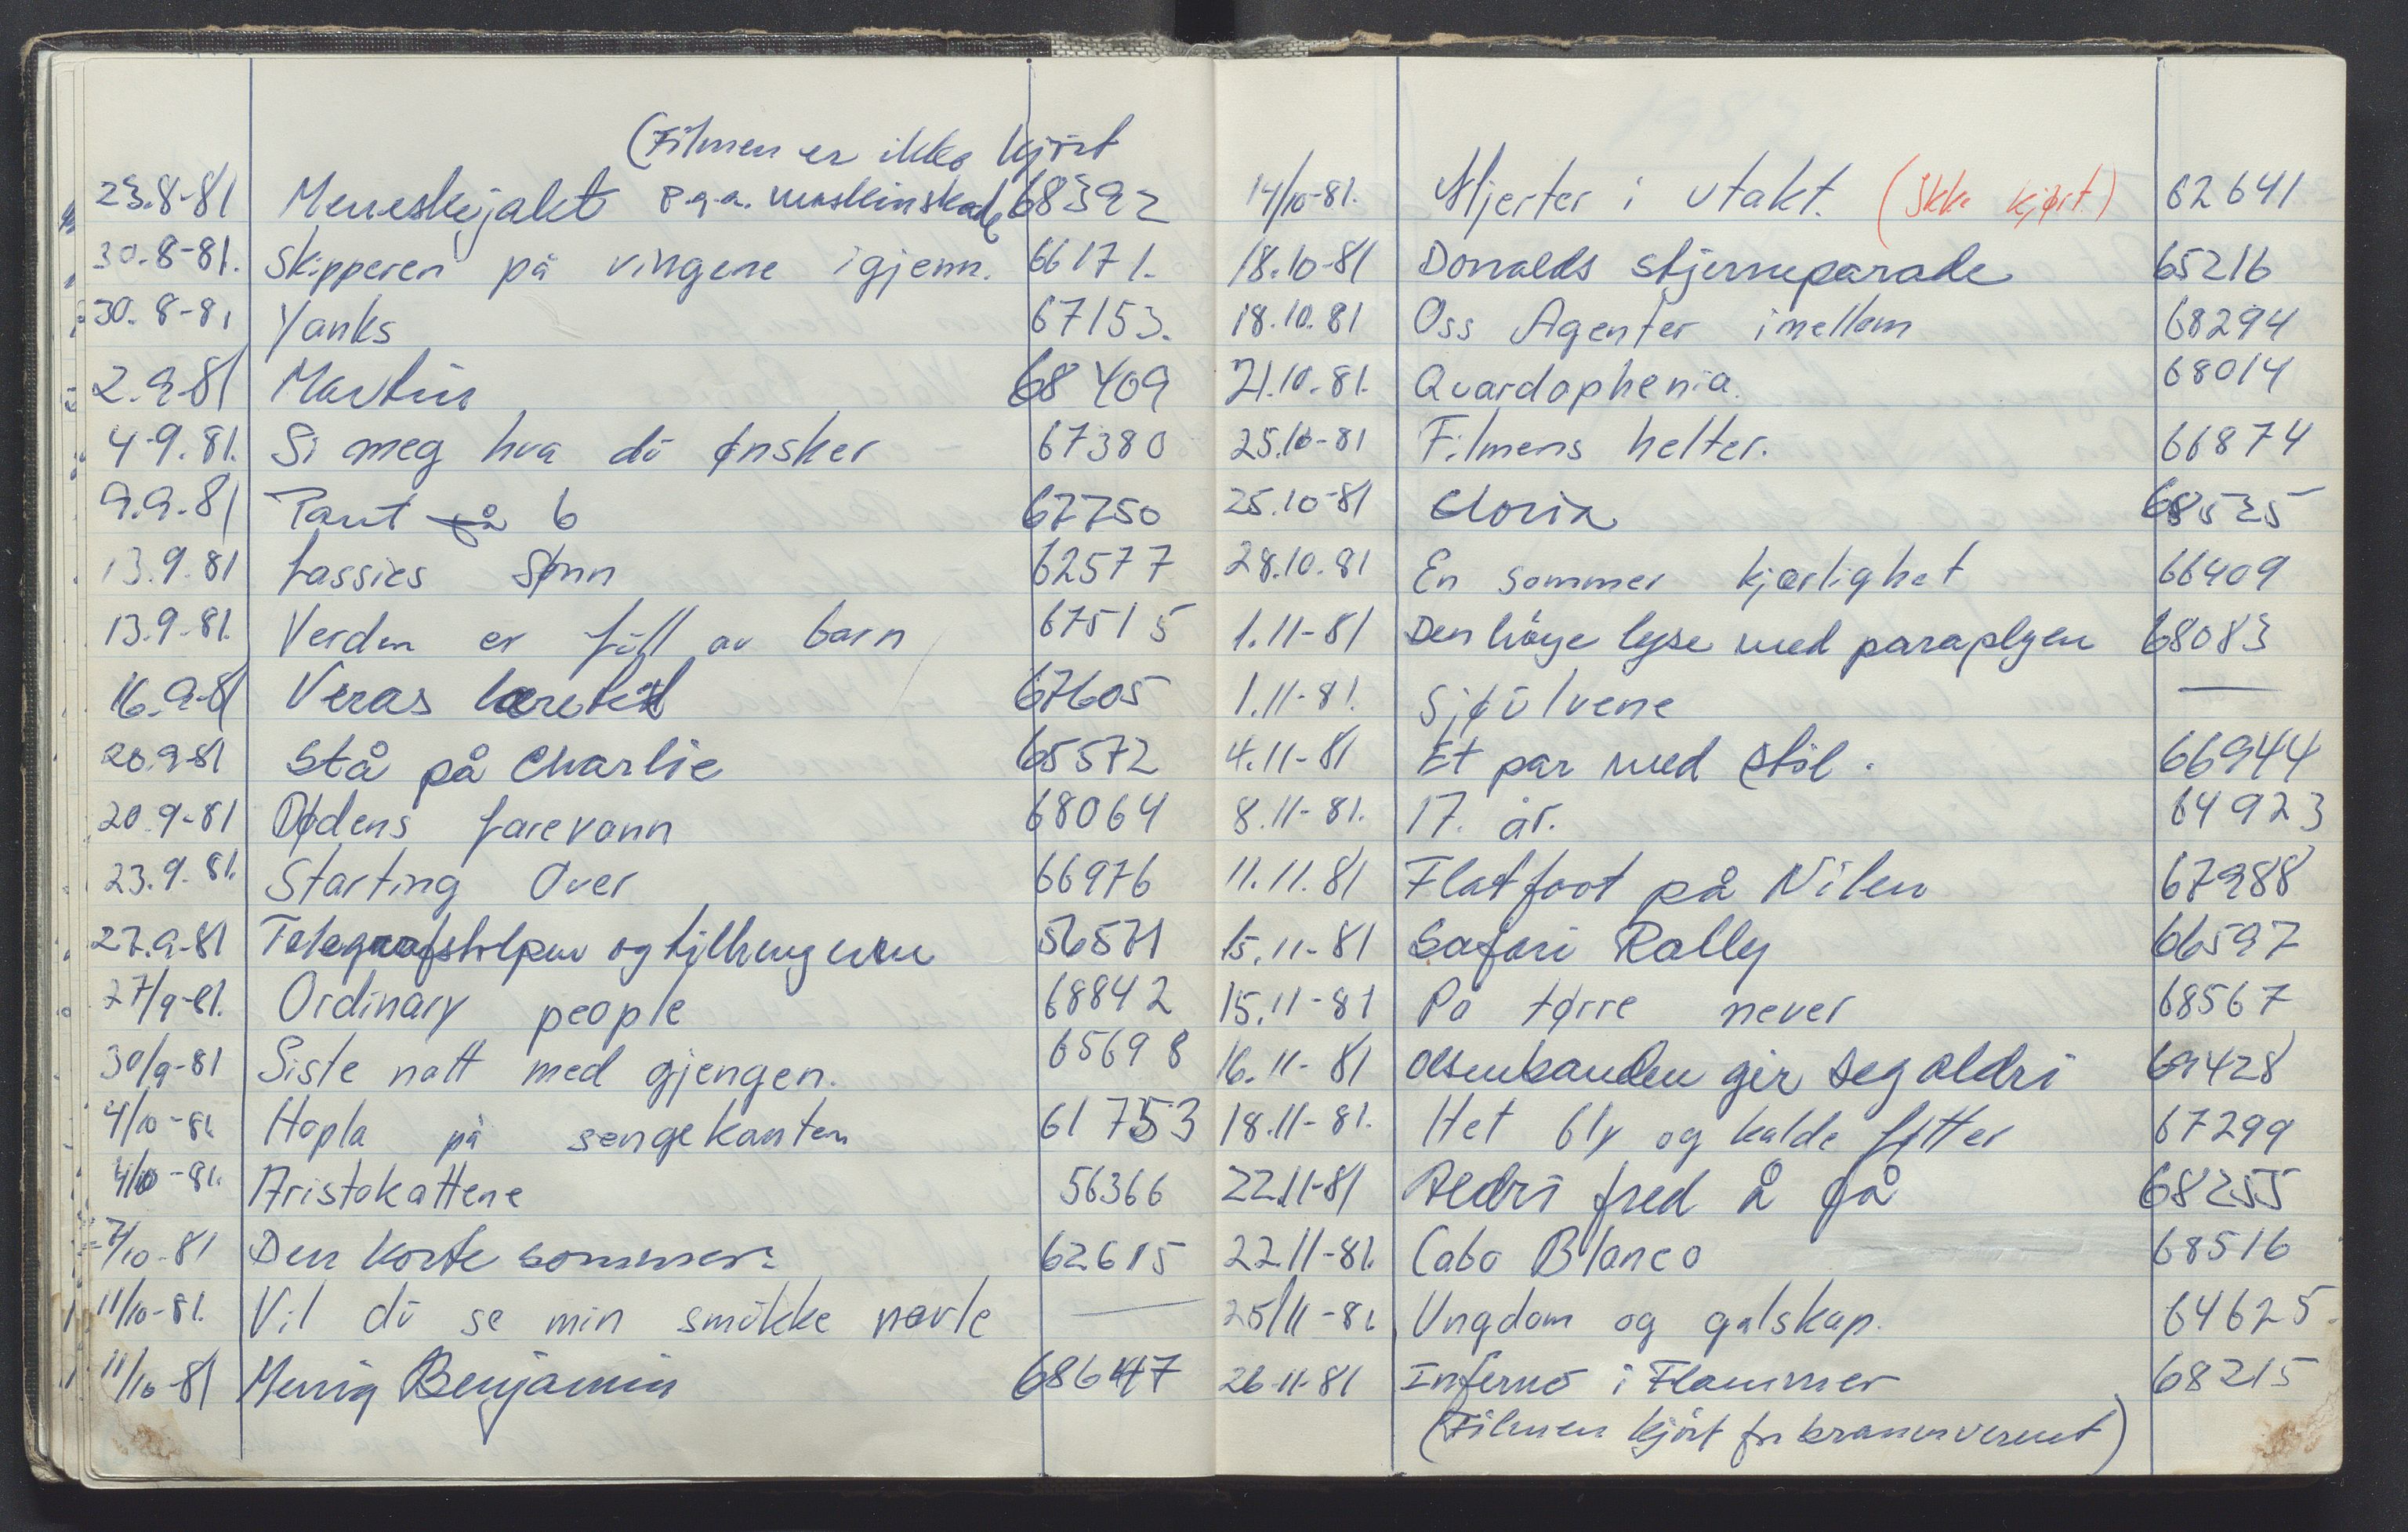 (Filmen er ikke kjørt
23.8-81 Meneskejakt p.g.a. maskinskade 68392
30.8-81. Skipperen på vingene igjenn. 66171.
30.8-81 Yanks 67153.
2.9-81 Martin 68409
4-9.81. Si meg hva du ønsker 67380
9.9.81 Tant på 6 67750
13.9.81 Lassies Sønn 62577
13.9-81. Verden er full av barn 67515
16.9-81 Veras 67605
20.9-81 Stå på Charlie 65572
20.9-81 Dødens farevann 68064
23.9.81. Starting Over 66976
27.9-81 Telegrafstolpen og tilhengeren 56571
27/9-81. Ordinary people 68842
30/9-81 Siste natt med gjengen. 65698
4/10-81. Hopla på sengekanten 61753
4/10-81. Aristokattene 56366
7/10-81 Den korte sommer. 62615
11/10-81. Vil du se min smukke navle —
11/10-81 Menig Benjamin 68647
14/10-81. Hjerter i utakt. (Ikke kjørt.) 62641
18.10-81 Donalds stjerneparade 65216
18.10.81 Oss Agenter imellom 68294
21.10.81. Quardophenia. 68014
25.10-81 Filmens helter. 66874
25.10-81 Gloria 68525
28.10.81 En sommer kjærlighet 66409
1.11-81 Den høye lyse med paraplyen 68083
1.11-81. Sjøulvene —
4.11-81 Et par med stil. 66944
8.11-81. 17. år. 64923
11.11.81 Flatfoot på Nilen 67988
15.11-81 Safari Rally 66597
15.11-81 På tørre never 68567
16.11-81 Olsenbanden gir seg aldri 69428
18.11-81. Het bly og kalde føtter 67299
22.11-81 Aldri fred å få 68255
22.11-81. Cabo Blanco 68516
25/11-81 Ungdom og galskap. 64625.
26-11-81 Inferno i Flammer 68215
(Filmen kjørt for brannvernet)